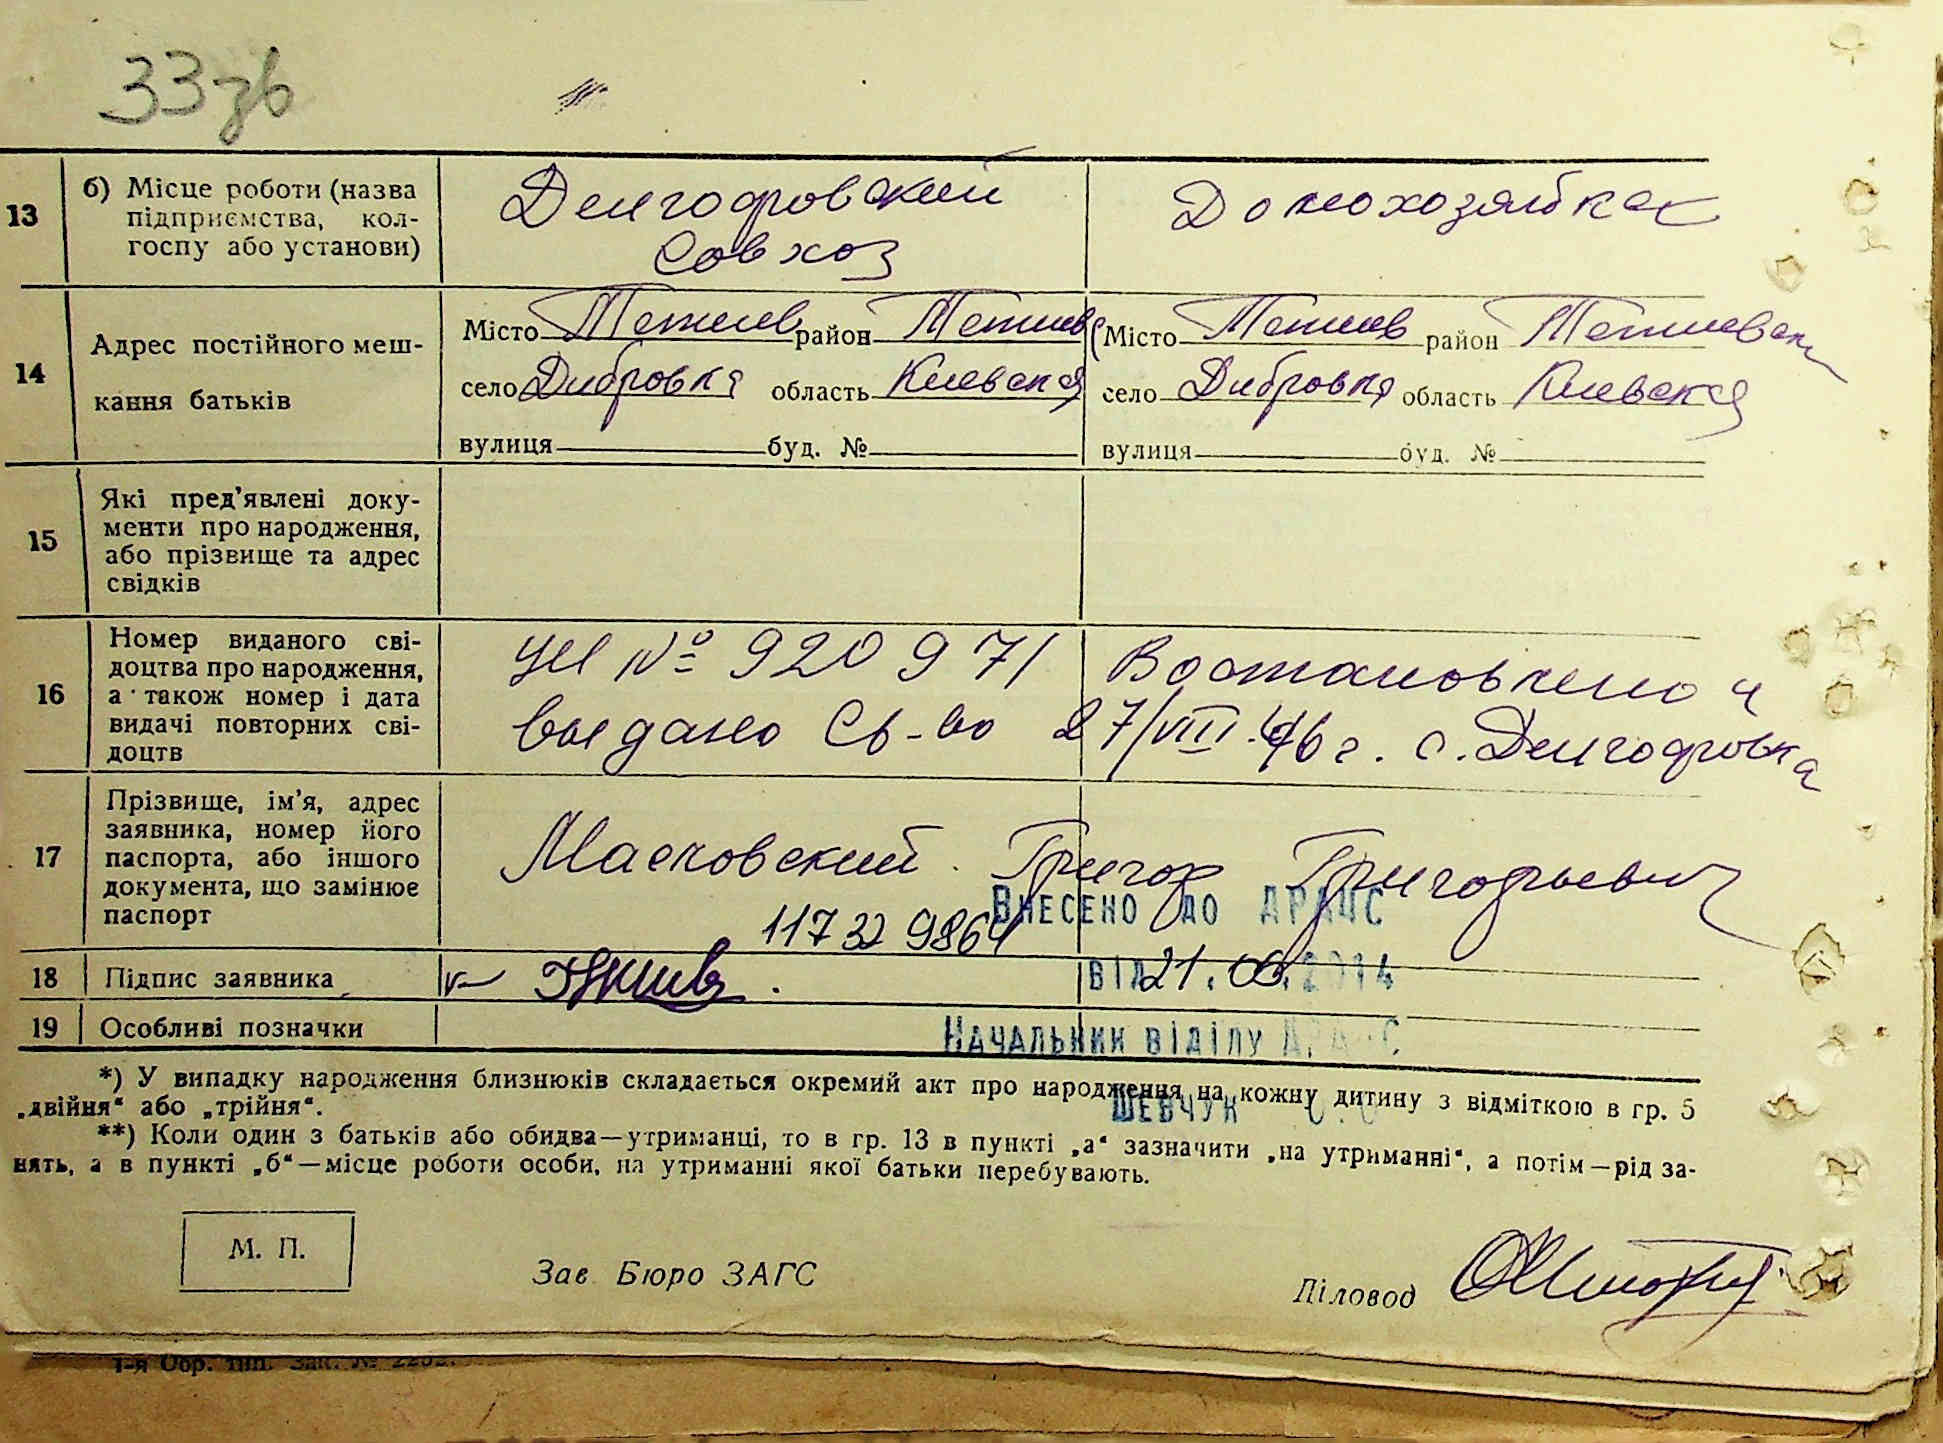 33 зв
13 б) Місце роботи (назва
підприємства, кол-
госпу або установи)
Денгофовский
Совхоз
Домохозяйка
14 Адрес постійного меш-
кання батьків
Місто Тетиев район Тетиев
село Дибровка область Киевская
вулиця буд. №
Місто Тетиев район Тетиевск
село Дибровка область Киевская
вулиця буд. №
15 Які пред'явлені доку-
менти про народження,
або прізвище та адрес
свідків
16 Номер виданого сві-
доцтва про народження,
а також номер і дата
видачі повторних сві-
доцтв
№ 920971 Востановлено и
выдано Св-во 27/VIII 46 г. с. Денгофовка
17 Прізвище, ім'я, адрес
заявника, номер його
паспорта, або іншого
документа, що замінює
паспорт
Масловский Григор Григорьевич
11732 9864
18 Підпис заявника
19 Особливі позначки
Внесено до ДРАЦС
від 21.06.2014
Начальник відділу ДРАЦС
Шевчук
*) У випадку народження близнюків складається окремий акт про народження на кожну дитину з відміткою в гр. 5
„двійня“ або „трійня“.
**) Коли один з батьків або обидва—утриманці, то в гр. 13 в пункті „а“ зазначити „на утриманні“, а потім—рід за-
нять, а в пункті „б“—місце роботи особи, на утриманні якої батьки перебувають.
М. П.
Зав Бюро ЗАГС
Діловод
1-я Обр. тип. Зак. № 2232.